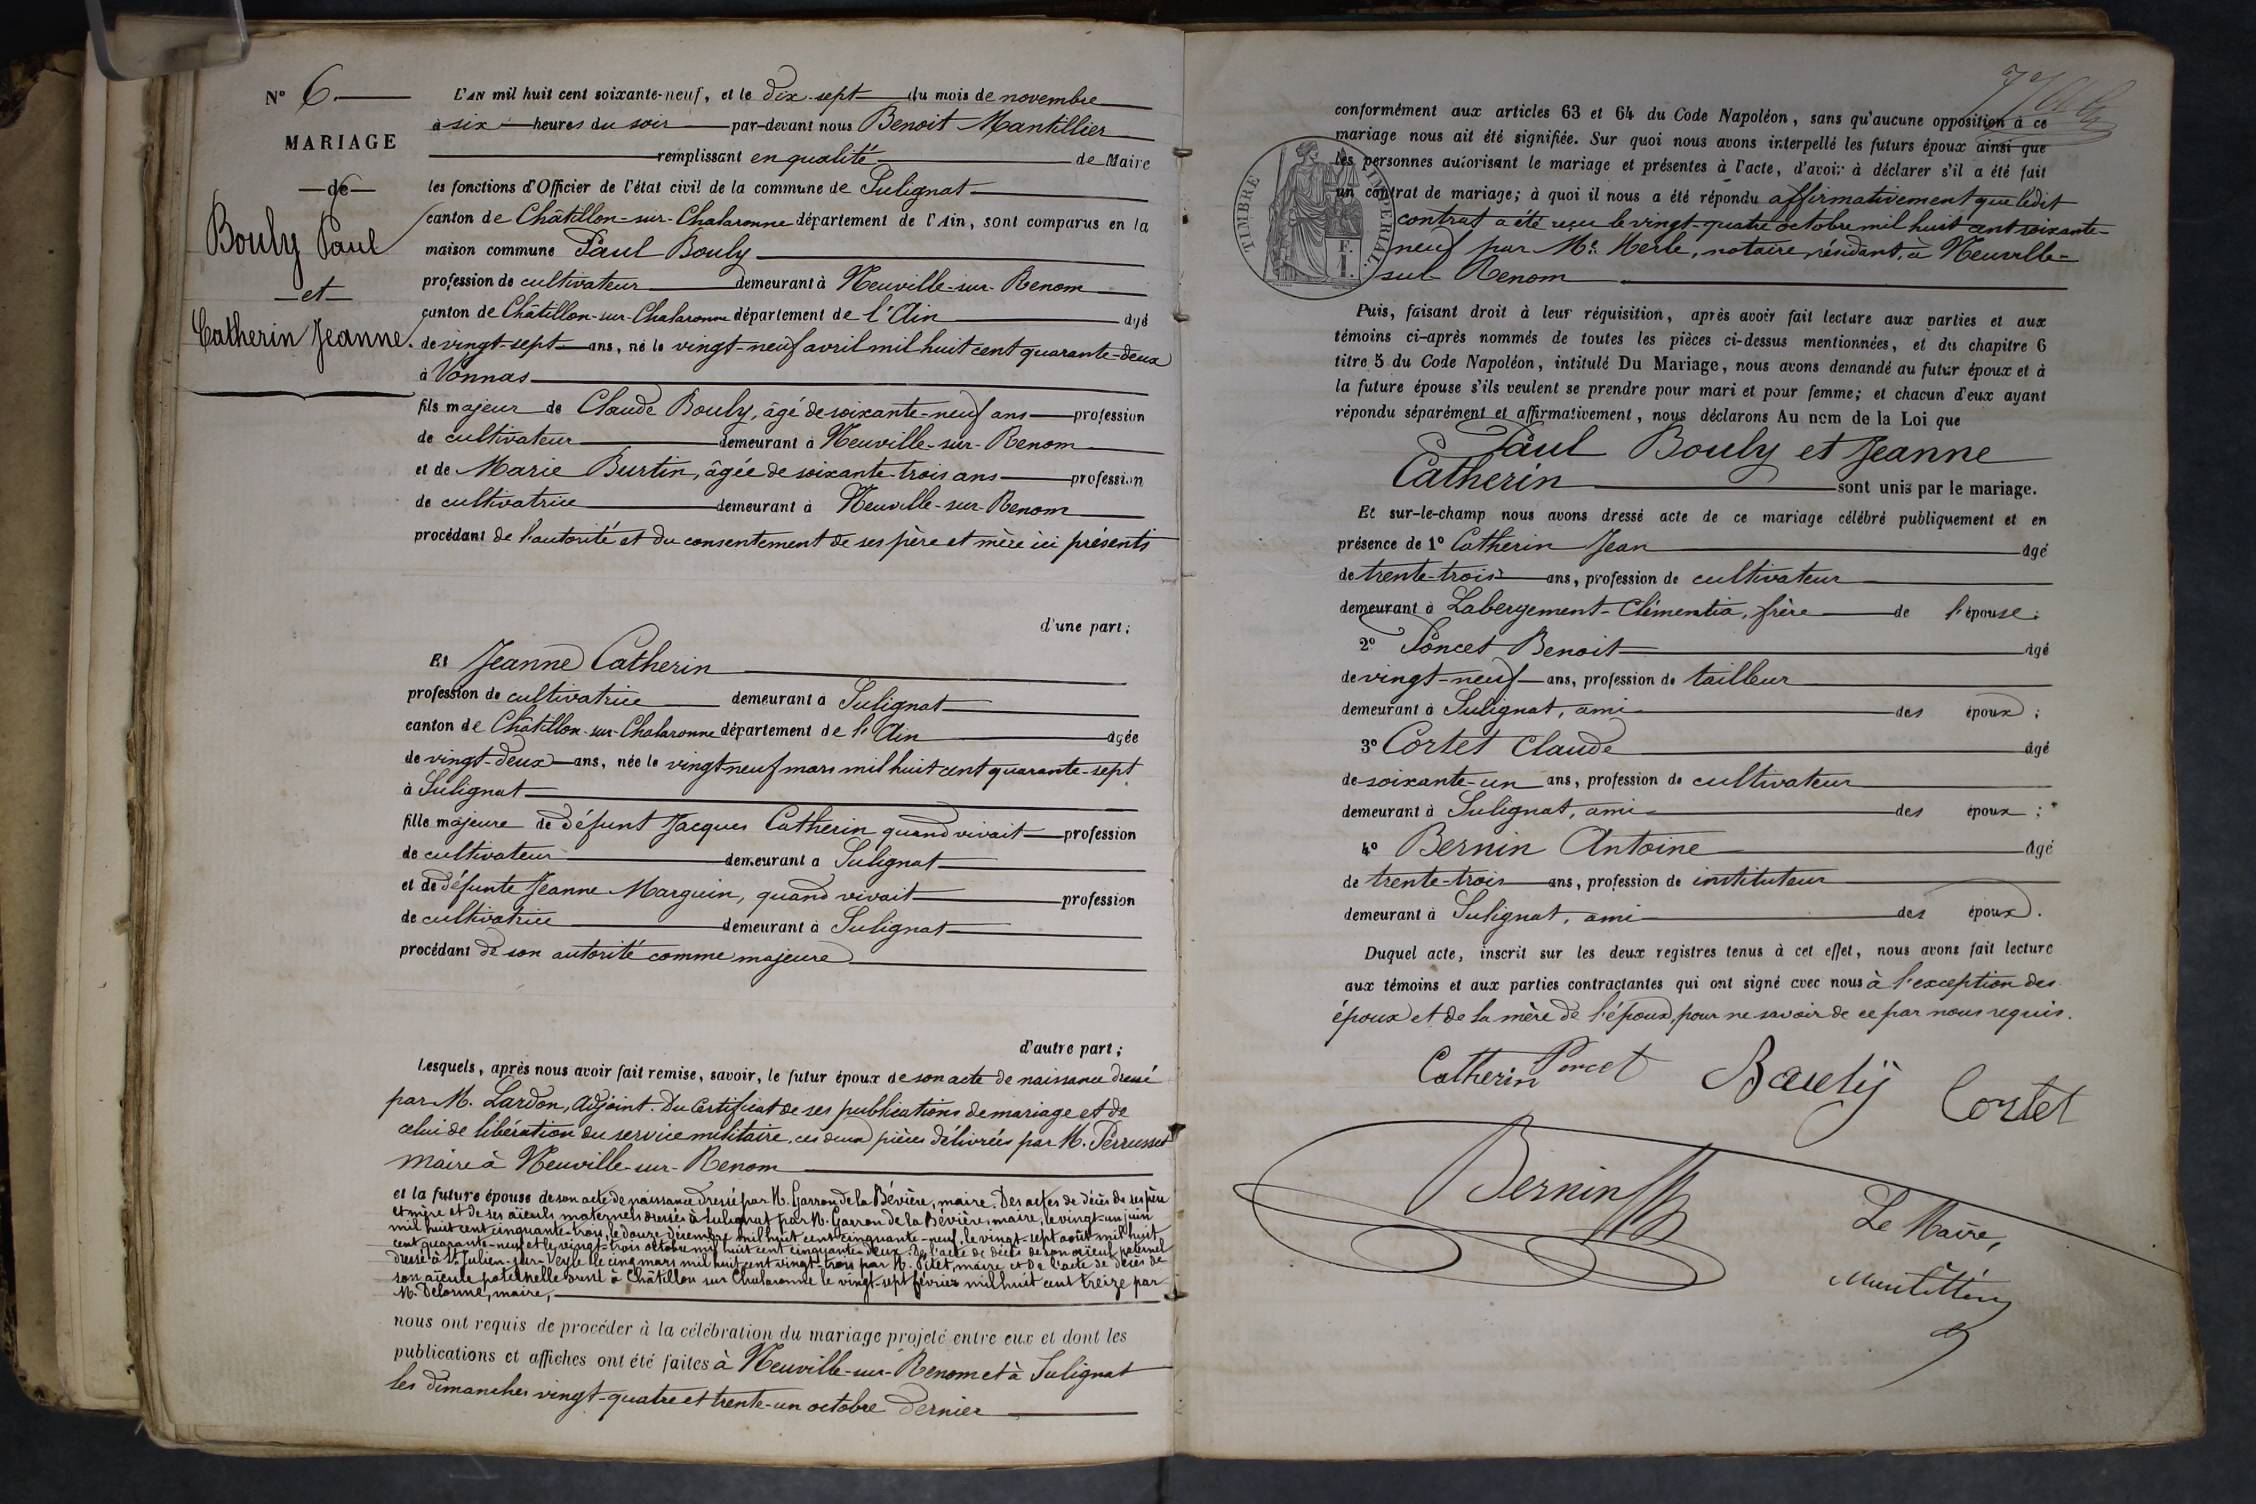 N° 6.
MARIAGE
de
Bouly Paul
et
Catherin Jeanne.
L'AN mil huit cent soixante-neuf, et le dix-sept du mois de novembre
à six heures du soir par-devant nous Benoit Mantillier
remplissant en qualité de Maire
les fonctions d'Officier de l'état civil de la commune de Sulignat
canton de Châtillon-sur-Chalaronne département de l'Ain, sont comparus en la
maison commune Paul Bouly
profession de cultivateur demeurant à Neuville-sur-Renom
canton de Châtillon-sur-Chalaronne département de l'Ain âgé
de vingt-sept ans, né le vingt-neuf avril mil huit cent quarante-deux
à Vonnas
fils majeur de Claude Bouly, âgé de soixante-neuf ans profession
de cultivateur demeurant à Neuville-sur-Renom
et de Marie Burtin, âgée de soixante-trois ans profession
de cultivatrice demeurant à Neuville-sur-Renom
procédant de l'autorité et du consentement de ses père et mère ici présents
d'une part;
Et Jeanne Catherin
profession de cultivatrice demeurant à Sulignat
canton de Châtillon-sur-Chalaronne département de l'Ain âgée
de vingt-deux ans, née le vingt-neuf mars mil huit cent quarante-sept
à Sulignat
fille majeure de défunt Jacques Catherin quand vivait profession
de cultivateur demeurant à Sulignat
et de défunte Jeanne Marguin, quand vivait profession
de cultivatrice demeurant à Sulignat
procédant de son autorité comme majeure
d'autre part;
Lesquels, après nous avoir fait remise, savoir, le futur époux de son acte de naissance dressé
par M. Lardon, adjoint. Du certificat de ses publications de mariage et de
celui de libération du service militaire, ces deux pièces délivrées par M. Perrusset
maire à Neuville-sur-Renom
et la future épouse de son acte de naissance dressé par M. Garron de la Bévière, maire. Des actes de décès de ses père
et mère et de ses aïeuls maternels dressés à Sulignat par M. Garron de la Bévière, maire, le vingt-un juin
mil huit cent cinquante-trois, le douze décembre mil huit cent cinquante-neuf, le vingt-sept août mil huit
cent quarante-neuf et le vingt-trois octobre mil huit cent cinquante-deux. De l'acte de décès de son aïeul paternel
dressé à St Julien-sur-Veyle le cinq mars mil huit cent vingt-trois par M. Pitet, maire et de l'acte de décès de
son aïeule paternelle dressé à Châtillon sur Chalaronne le vingt-sept février mil huit cent treize par
M. Delorme, maire,
nous ont requis de procéder à la célébration du mariage projeté entre eux et dont les
publications et affiches ont été faites à Neuville-sur-Renom et à Sulignat
les dimanches vingt-quatre et trente-un octobre dernier
TIMBRE IMPERIAL
F.
1.
conformément aux articles 63 et 64 du Code Napoléon, sans qu'aucune opposition à ce
mariage nous ait été signifiée. Sur quoi nous avons interpellé les futurs époux ainsi que
les personnes autorisant le mariage et présentes à l'acte, d'avoir à déclarer s'il a été fait
un contrat de mariage; à quoi il nous a été répondu affirmativement que ledit
contrat a été reçu le vingt-quatre octobre mil huit cent soixante-
neuf par Me Merle, notaire, résidant, à Neuville-
sur Renom
Puis, faisant droit à leur réquisition, après avoir fait lecture aux parties et aux
témoins ci-après nommés de toutes les pièces ci-dessus mentionnées, et du chapitre 6
titre 5 du Code Napoléon, intitulé Du Mariage, nous avons demandé au futur époux et à
la future épouse s'ils veulent se prendre pour mari et pour femme; et chacun d'eux ayant
répondu séparément et affirmativement, nous déclarons Au nom de la Loi que
Paul Bouly et Jeanne
Catherin sont unis par le mariage.
Et sur-le-champ nous avons dressé acte de ce mariage célébré publiquement et en
présence de 1° Catherin Jean âgé
de trente-trois ans, profession de cultivateur
demeurant à Labergement-Clémentia, frère de l'épouse;
2° Poncet Benoit âgé
de vingt-neuf ans, profession de tailleur
demeurant à Sulignat, ami des époux;
3° Cortet Claude âgé
de soixante-un ans, profession de cultivateur
demeurant à Sulignat, ami des époux;
4° Bernin Antoine âgé
de trente-trois ans, profession de instituteur
demeurant à Sulignat, ami des époux.
Duquel acte, inscrit sur les deux registres tenus à cet effet, nous avons fait lecture
aux témoins et aux parties contractantes qui ont signé avec nous à l'exception des
époux et de la mère de l'époux, pour ne savoir de ce par nous requis.
Catherin Poncet Bouly Cortet
Bernin
Le Maire,
Mantillier